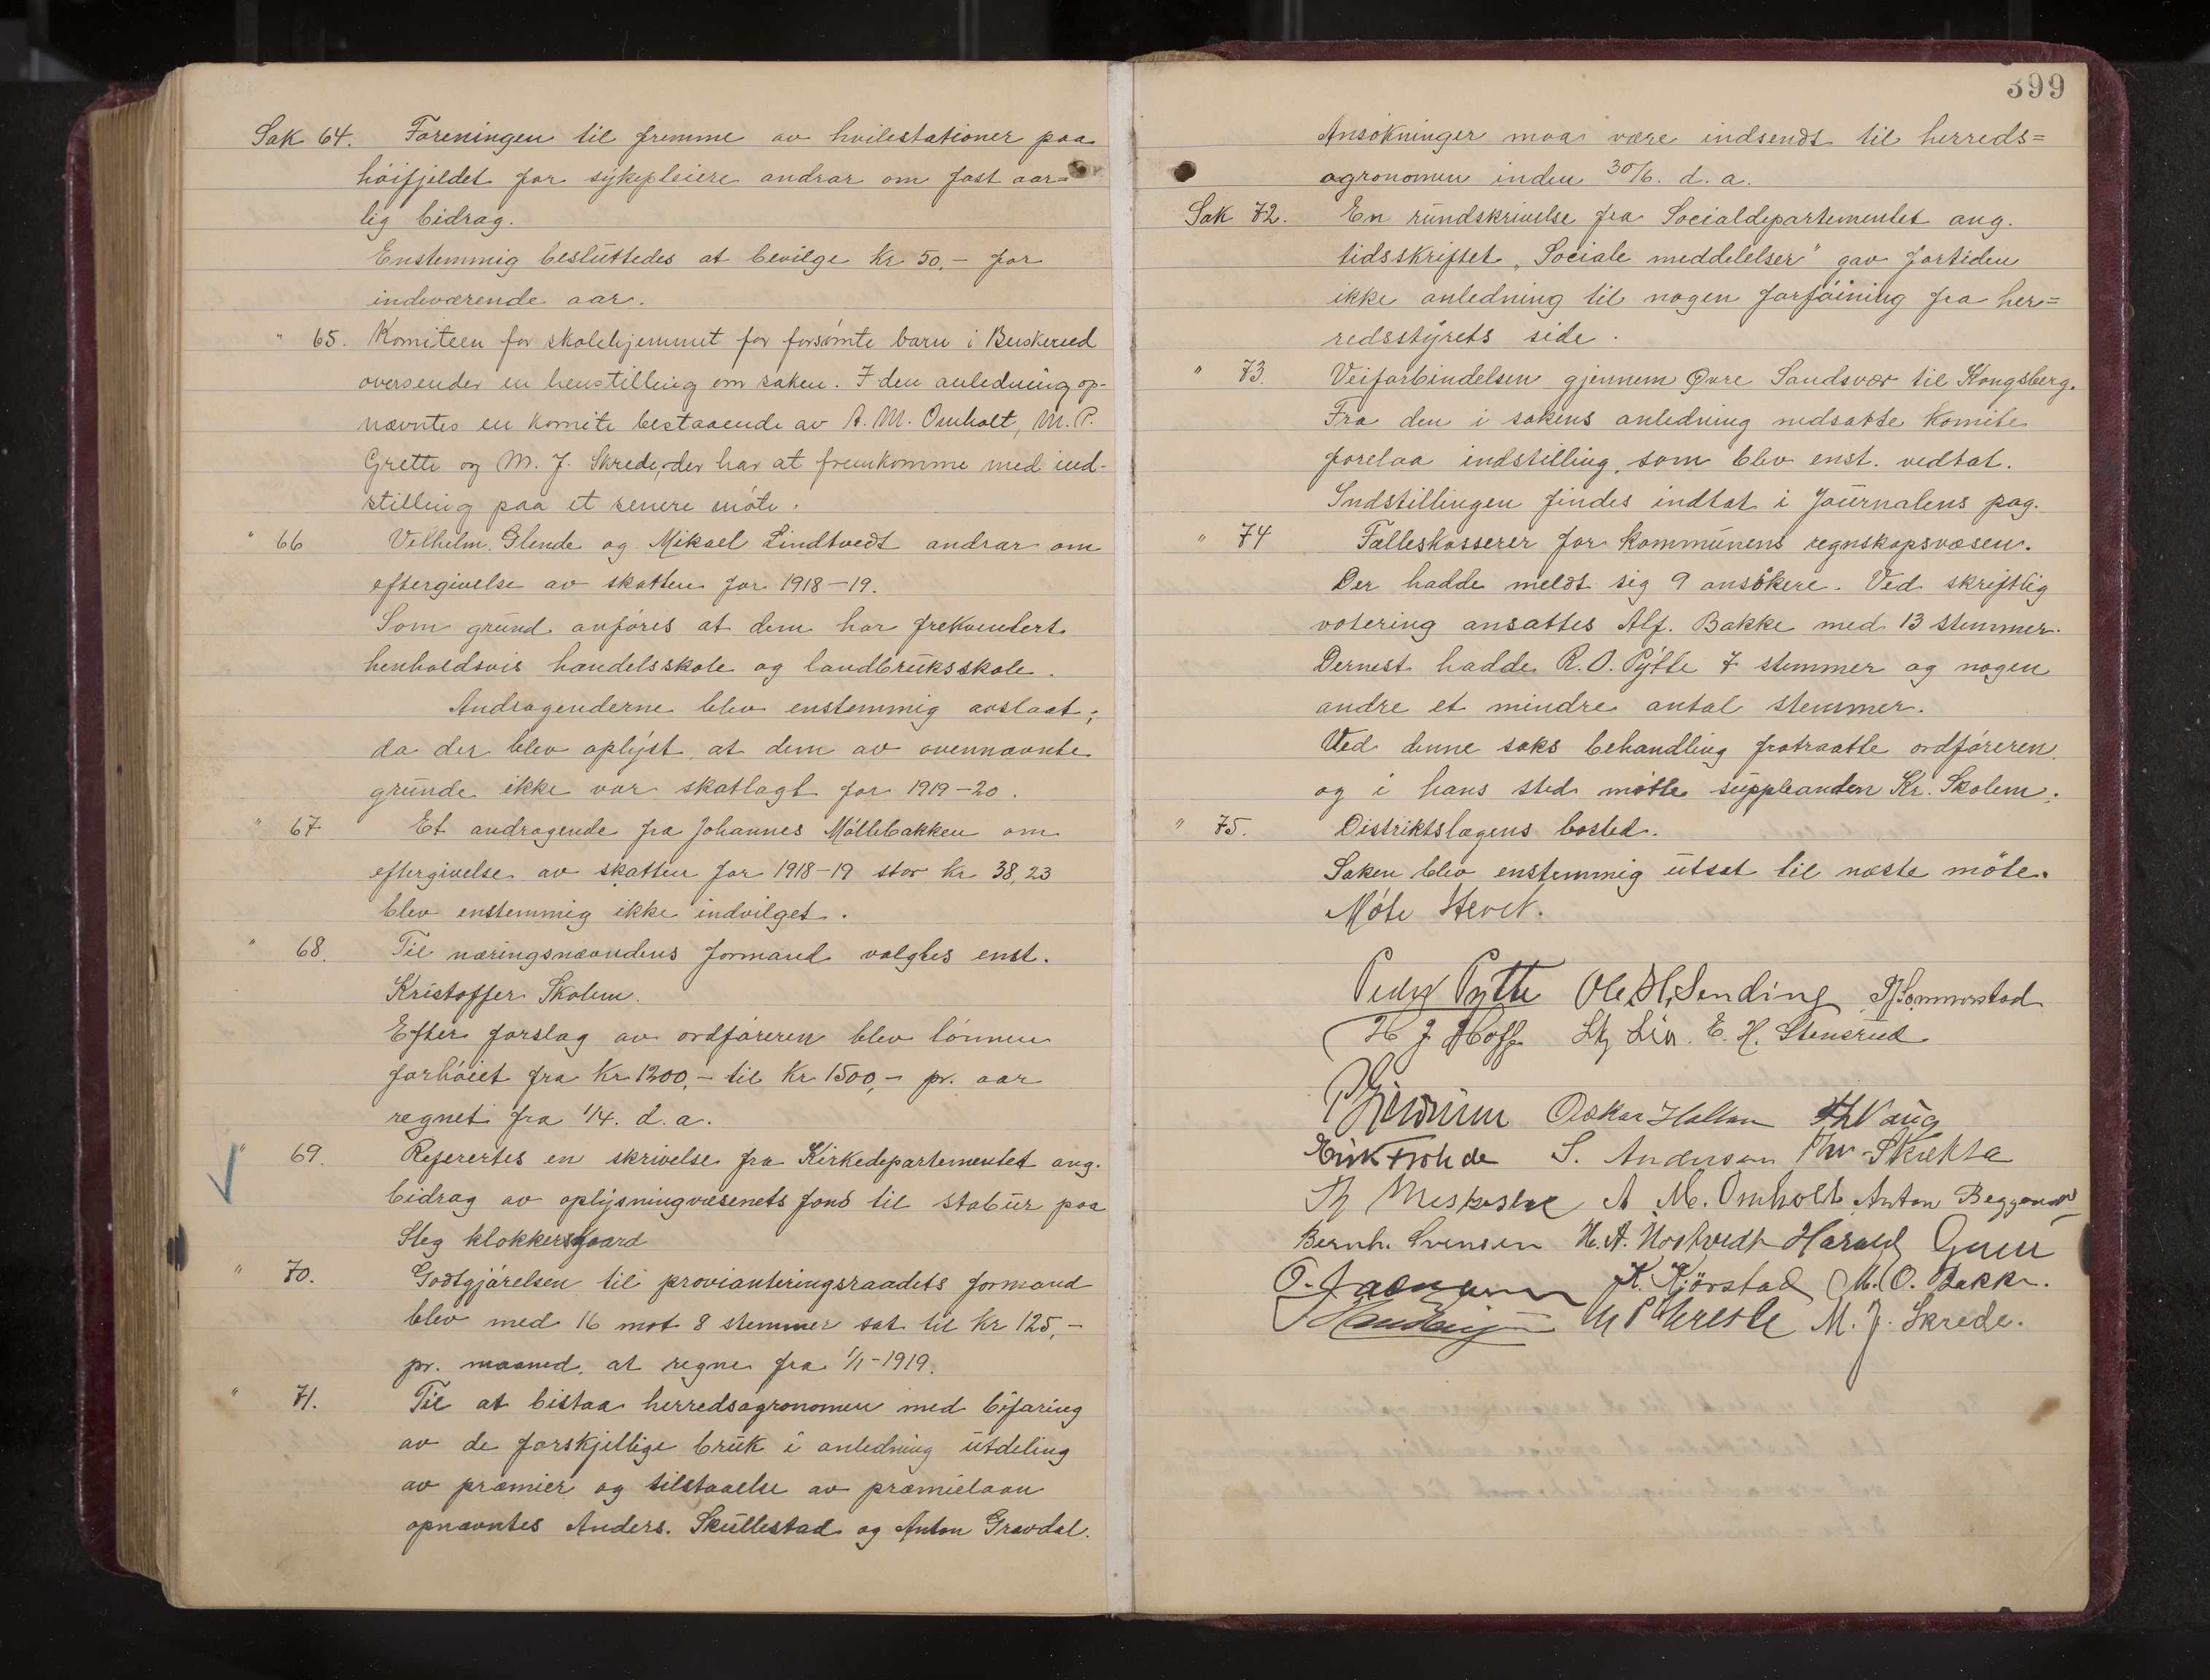 Sak 64. Foreningen til fremme av hvilestationer paa
höifjeldet for sykepleiere andrar om fast aar=
lig bidrag.
Enstemmig besluttedes at bevilge Kr 50,- for
indeværende aar.
" 65. Komiteen for skolehjemmet for forsömte barn i Buskerud
oversender en henstilling om saken. I den anledning op-
nævntes en komite bestaaende av A. M. Omholt, M. P.
Grette og M. J. Skrede, der har at fremkomme med ind-
stilling paa et senere möte.
" 66 Vilhelm Glende og Mikael Lindtvedt andrar om
eftergivelse av skatten for 1918-19.
Som grund anföres at dem har frekventert
henholdsvis handelsskole og landbruksskole.
Andragenderne blev enstemmig avslaat;
da der blev oplyst, at dem av ovennævnte
grunde ikke var skatlagt for 1919-20.
" 67 Et andragende fra Johannes Möllebakken om
eftergivelse av skatten for 1918-19 stor kr 38,23
blev enstemmig ikke indvilget.
" 68. Til næringsnævndens formand valgtes enst.
Kristoffer Skolem.
Efter forslag av ordföreren blev lönnen
forhöiet fra Kr 1200,- til Kr 1500,- pr. aar
regnet fra 1/4. d. a.
" 69. Referertes en skrivelse fra Kirkedepartementet ang.
bidrag av oplysningvæsenets fond til stabur paa
Steg klokkergaard
" 70. Godtgjörelsen til provianteringsraadets formand
blev med 16 mot 8 stemmer sat til kr 125,-
pr. maaned, at regne fra 1/1-1919.
" 71. Til at bistaa herredsagronomen med bifaring
av de forskjellige bruk i anledning utdeling
av præmier og tilstaaelse av præmielaan
opnævntes Anders. Skullestad og Anton Gravdal.
399
Ansökninger maa være indsendt til herreds=
agronomen inden 30/6. d. a.
Sak 72. En rundskrivelse fra Socialdepartementet ang.
tidsskriftet „Sociale meddelelser" gav fortiden
ikke anledning til nogen forföining fra her=
redsstyrets side.
" 73. Veiforbindelsen gjennem Övre Sandsvær til Kongsberg.
Fra den i sakens anledning nedsatte Komite
forelaa indstilling, som blev enst. vedtat.
Indstillingen findes indtat i Journalens pag.
" 74 Fælleskasserer for kommunens regnskapsvæsen.
Der hadde meldt sig 9 ansökere. Ved skriftlig
votering ansattes Alf. Bakke med 13 stemmer.
Dernest hadde R. O. Pytte 7 stemmer og nogen
andre et mindre antal stemmer.
Ved denne saks behandling fratraatte ordföreren
og i hans sted mötte suppleanden Kr. Skolem.
" 75. Distriktslægens bosted.
Saken blev enstemmig utsat til næste möte.
Möte Hevet.
Peder Pytte Ole H. Sending Sommerstad
H J Hoff Lia. E. H. Stensrud
Oskar Holtan Th Vaug
Erik Frohde S. Andersen
Th A M. Omholt Anton
Bernh. Svensen H. A. Hostvedt Harald
K. Kjörstad M. O. Bakke.
M P Grette M. J. Skrede.